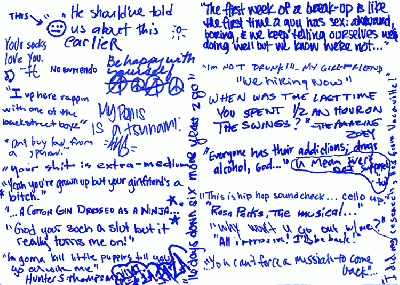 THIS →
"He should've told
us about this
earlier
Your socks
love you.
No entiendo
Be happy with
yourself
"I up here rappin
with one of the
backstreet boys"
My Penis
IS a tsunami.
"your shit is extra-medium
"Yeah you're grown up but your girlfriend's a
bitch."
"...A COTTON GIN DRESSED AS A NINJA."
"God you such a slut but it
really turns me on!"
"I'm gonna kill little puppies till you
go outside me"
Hunter S. Thompson
"16 days down six more years 2 go"
"The first week of a break-up is like
the first time a guy has sex: awkward,
boring, & we keep telling ourselves we're
doing well but we know we're not..."
"I'M NOT DRUNK!!! MY GIRLFRIEND
"We hiking Now"
WHEN WAS THE LAST TIME
YOU SPENT 1/2 AN HOUR ON
THE SWINGS?" -THE AMAZING
ZOEY
"Everyone has their addictions; drugs
alcohol, God..."
"This is hip hop soundcheck... cello up
Rosa Parks, The musical..."
"Why won't u go out w/ me?
"You can't force a mission to come
back"